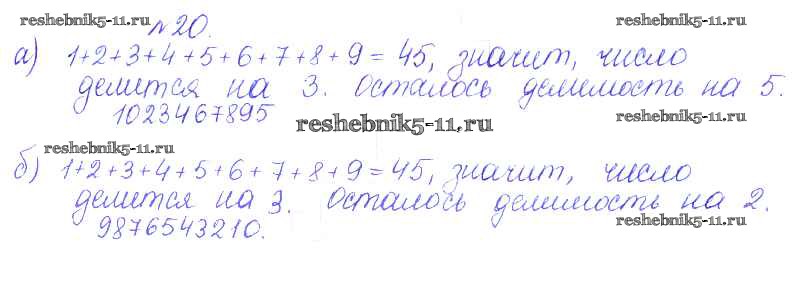 reshebnik5-11.ru
№20.
reshebnik5-11.ru
а) 1+2+3+4+5+6+7+8+9=45, значит, число
делится на 3. Осталось делимость на 5.
1023467895
reshebnik5-11.ru
reshebnik5-11.ru
reshebnik5-11.ru
б) 1+2+3+4+5+6+7+8+9=45, значит, число
делится на 3. Осталось делимость на 2.
9876543210.
reshebnik5-11.ru